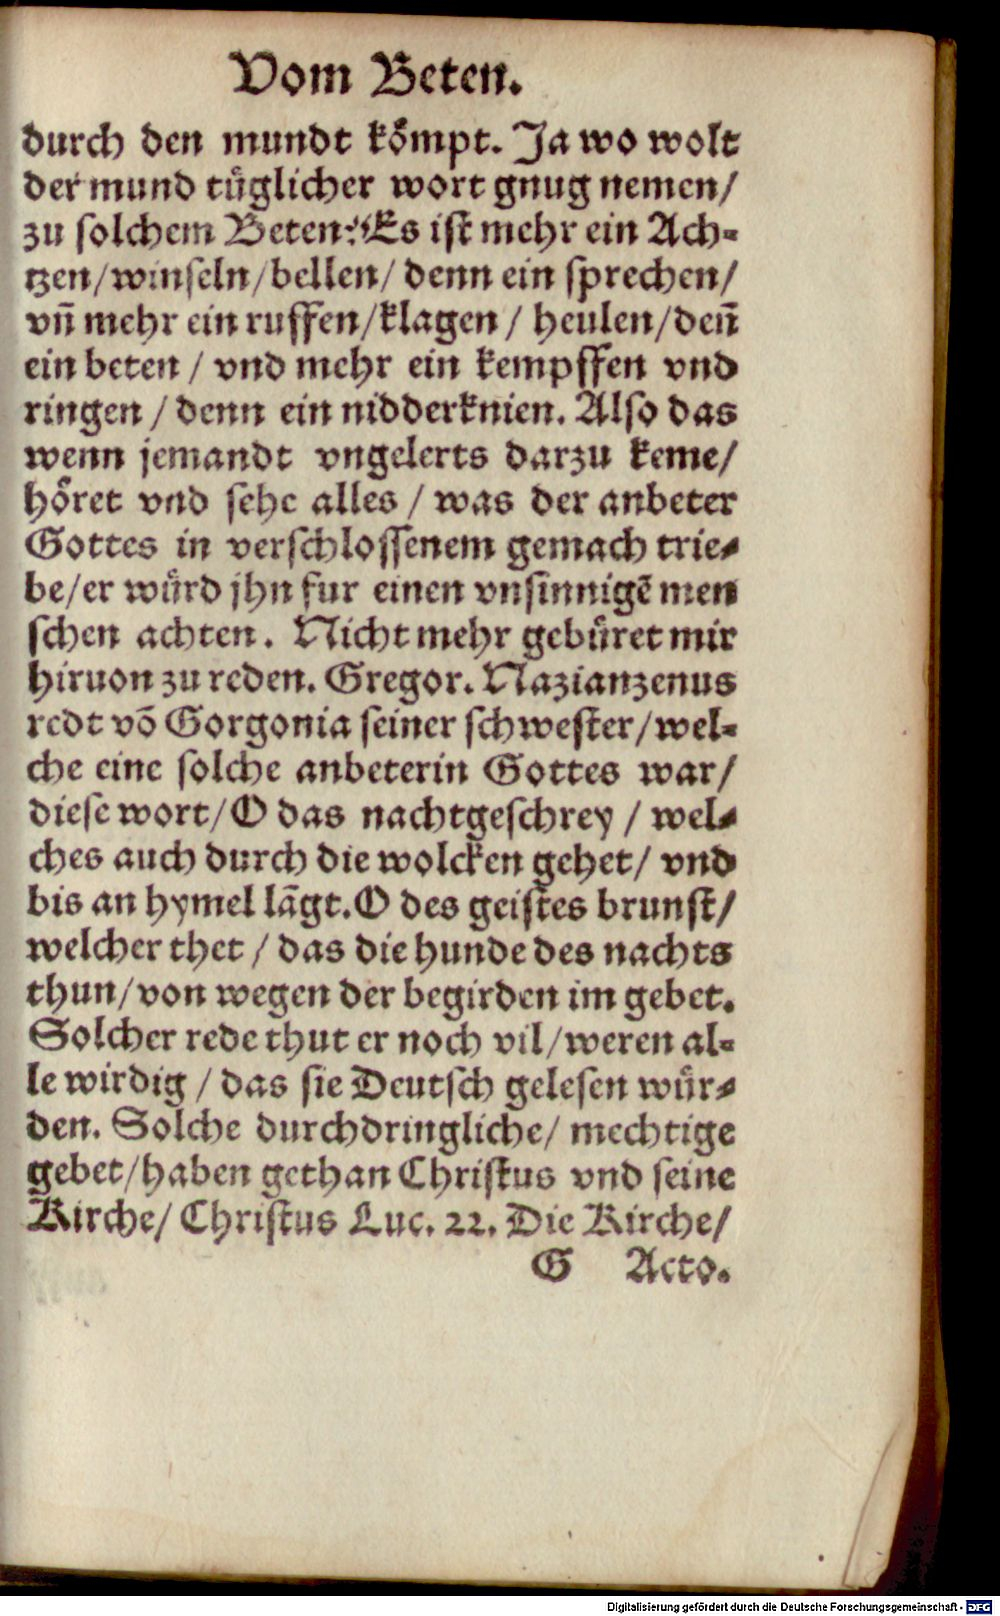 Vom Beten.
durch den mundt kömpt. Ja wo wolt
der mund tüglicher wort gnug nemen/
zu solchem Beten? Es ist mehr ein Ach-
tzen/winseln/bellen/ denn ein sprechen/
vñ mehr ein ruffen/klagen / heulen/deñ
ein beten / vnd mehr ein kempffen vnd
ringen / denn ein nidderknien. Also das
wenn jemandt vngelerts darzu keme/
höret vnd sehe alles / was der anbeter
Gottes in verschlossenem gemach trie-
be/er würd jhn fur einen vnsinnigẽ men
schen achten. Nicht mehr gebüret mir
hiruon zu reden. Gregor. Nazianzenus
redt võ Gorgonia seiner schwester/wel-
che eine solche anbeterin Gottes war/
diese wort/O das nachtgeschrey / wel-
ches auch durch die wolcken gehet/ vnd
bis an hymel lãgt.O des geistes brunst/
welcher thet / das die hunde des nachts
thun/von wegen der begirden im gebet.
Solcher rede thut er noch vil/weren al-
le wirdig / das sie Deutsch gelesen wür-
den. Solche durchdringliche/ mechtige
gebet/haben gethan Christus vnd seine
Kirche/ Christus Luc. 22. Die Kirche/
G Acto.
Digitalisierung gefördert durch die Deutsche Forschungsgemeinschaft - DFG